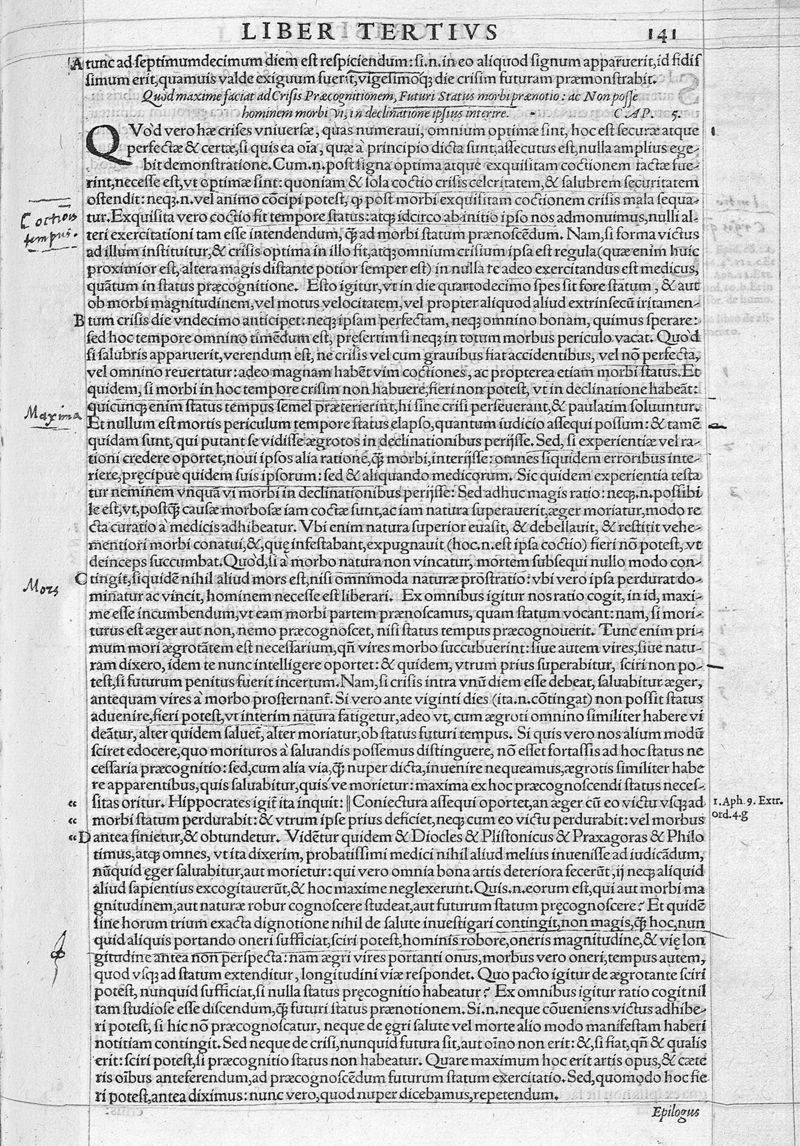 LIBER TERTIVS 141
A tunc ad septimumdecimum diem est respiciendum: si.n.in eo aliquod signum apparuerit, id fidis
simum erit, quamuis valde exiguum fuerit, vigesimoq; die crisim futuram præmonstrabit.
Quòd maxime faciat ad Crisis Præcognitionem, Futuri Status morbi prænotio: ac Non posse
hominem morbi vi, in declinatione ipsius interire. CAP. 5.
QVo'd vero hæ crises vniuersæ, quas numeraui, omnium optimæ sint, hoc est securæ atque
perfectæ & certæ, si quis ea oīa, quæ a' principio dicta sunt, assecutus est, nulla amplius ege-
bit demonstratione. Cum.n.post signa optima atque exquisitam coctionem factæ fue-
rint, necesse est, vt optimæ sint: quoniam & sola coctio crisis celeritatem, & salubrem securitatem
ostendit: neq;.n.vel animo cōcipi potest, q̄ post morbi exquisitam coctionem crisis mala sequa-
tur. Exquisita vero coctio fit tempore status: atq; idcirco ab initio ipso nos admonuimus, nulli al-
teri exercitationi tam esse intendendum, q̄ ad morbi statum prænoscēdum. Nam, si forma victus
ad illum instituitur, & crisis optima in illo fit, atq; omnium crisium ipsa est regula (quæ enim huic
proximior est, altera magis distante potior semper est) in nulla re adeo exercitandus est medicus,
quātum in status præcognitione. Esto igitur, vt in die quartodecimo spes sit fore statum, & aut
ob morbi magnitudinem, vel motus velocitatem, vel propter aliquod aliud extrinsecū iritamen-
B tum crisis die vndecimo anticipet: neq; ipsam perfectam, neq; omnino bonam, quimus sperare:
sed hoc tempore omnino timēdum est, pręsertim si neq; in totum morbus periculo vacat. Quo'd
si salubris apparuerit, verendum est, ne crisis vel cum grauibus fiat accidentibus, vel nō perfecta,
vel omnino reuertatur: adeo magnam habēt vim coctiones, ac propterea etiam morbi status. Et
quidem, si morbi in hoc tempore crisim non habuere, fieri non potest, vt in declinatione habeāt:
quicunq; enim status tempus semel præterierint, hi sine crisi perseuerant, & paulatim soluuntur.
Et nullum est mortis periculum tempore status elapso, quantum iudicio assequi possum: & tamē
quidam sunt, qui putant se vidisse ægrotos in declinationibus perijsse. Sed, si experientiæ vel ra-
tioni credere oportet, noui ipsos alia ratione, q̄ morbi, interijsse: omnes siquidem erroribus inte-
riere, pręcipue quidem suis ipsorum: sed & aliquando medicorum. Sic quidem experientia testa
tur neminem vnquā vi morbi in declinationibus perijsse: Sed adhuc magis ratio: neq;.n.possibi
le est, vt, postq̄ causæ morbosæ iam coctæ sunt, ac iam natura superauerit, æger moriatur, modo re
cta curatio a' medicis adhibeatur. Vbi enim natura superior euasit, & debellauit, & restitit vehe-
mentiori morbi conatui, &, quę infestabant, expugnauit (hoc.n.est ipsa coctio) fieri nō potest, vt
deinceps succumbat. Quo'd, si a' morbo natura non vincatur, mortem subsequi nullo modo con-
C tingit, siquidē nihil aliud mors est, nisi omnimoda naturæ prostratio: vbi vero ipsa perdurat do-
minatur ac vincit, hominem necesse est liberari. Ex omnibus igitur nos ratio cogit, in id, maxi-
me esse incumbendum, vt eam morbi partem prænoscamus, quam statum vocant: nam, si mori-
turus est æger aut non, nemo præcognoscet, nisi status tempus præcognouerit. Tunc enim pri-
mum mori ægrotātem est necessarium, qn̄ vires morbo succubuerint: siue autem vires, siue natu-
ram dixero, idem te nunc intelligere oportet: & quidem, vtrum prius superabitur, sciri non po-
test, si futurum penitus fuerit incertum. Nam, si crisis intra vnū diem esse debeat, saluabitur æger,
antequam vires a' morbo prosternant. Si vero ante viginti dies (ita.n.cōtingat) non possit status
aduenire, fieri potest, vt interim natura fatigetur, adeo vt, cum ægroti omnino similiter habere vi
deātur, alter quidem saluet, alter moriatur, ob status futuri tempus. Si quis vero nos alium modū
sciret edocere, quo morituros a' saluandis possemus distinguere, nō esset fortassis ad hoc status ne
cessaria præcognitio: sed, cum alia via, q̄ nuper dicta, inuenire nequeamus, ægrotis similiter habe
re apparentibus, quis saluabitur, quis ve morietur: maxima ex hoc præcognoscendi status neces-
« sitas oritur. Hippocrates igit̄ ita inquit: ‖ Coniectura assequi oportet, an æger cū eo victu vsq; ad
« morbi statum perdurabit: & vtrum ipse prius deficiet, neq; cum eo victu perdurabit: vel morbus
« D antea finietur, & obtundetur. Vidētur quidem & Diocles & Plistonicus & Praxagoras & Philo
timus, atq; omnes, vt ita dixerim, probatissimi medici nihil aliud melius inuenisse ad iudicādum,
nūquid ęger saluabitur, aut morietur: qui vero omnia bona artis deteriora fecerūt, ij neq; aliquid
aliud sapientius excogitauerūt, & hoc maxime neglexerunt. Quis.n.eorum est, qui aut morbi ma
gnitudinem, aut naturæ robur cognoscere studeat, aut futurum statum pręcognoscere? Et quidē
sine horum trium exacta dignotione nihil de salute inuestigari contingit, non magis, q̄ hoc, nun
quid aliquis portando oneri sufficiat, sciri potest, hominis robore, oneris magnitudine, & vię lon
gitudine antea non perspecta: nam ægri vires portanti onus, morbus vero oneri, tempus autem,
quod vsq; ad statum extenditur, longitudini viæ respondet. Quo pacto igitur de ægrotante sciri
potest, nunquid sufficiat, si nulla status pręcognitio habeatur? Ex omnibus igitur ratio cogit nil
tam studiose esse discendum, q̄ futuri status prænotionem. Si.n.neque cōueniens victus adhibe-
ri potest, si hic nō præcognoscatur, neque de ęgri salute vel morte alio modo manifestam haberi
notitiam contingit. Sed neque de crisi, nunquid futura sit, aut oīno non erit: &, si fiat, qn̄ & qualis
erit: sciri potest, si præcognitio status non habeatur. Quare maximum hoc erit artis opus, & cæte
ris oībus anteferendum, ad præcognoscēdum futurum statum exercitatio. Sed, quomodo hoc fie
ri potest, antea diximus: nunc vero, quod nuper dicebamus, repetendum.
Epilogus
Coctionis
tempus.
Maxima
Mors
1. Aph. 9. Extr.
ord. 4. g